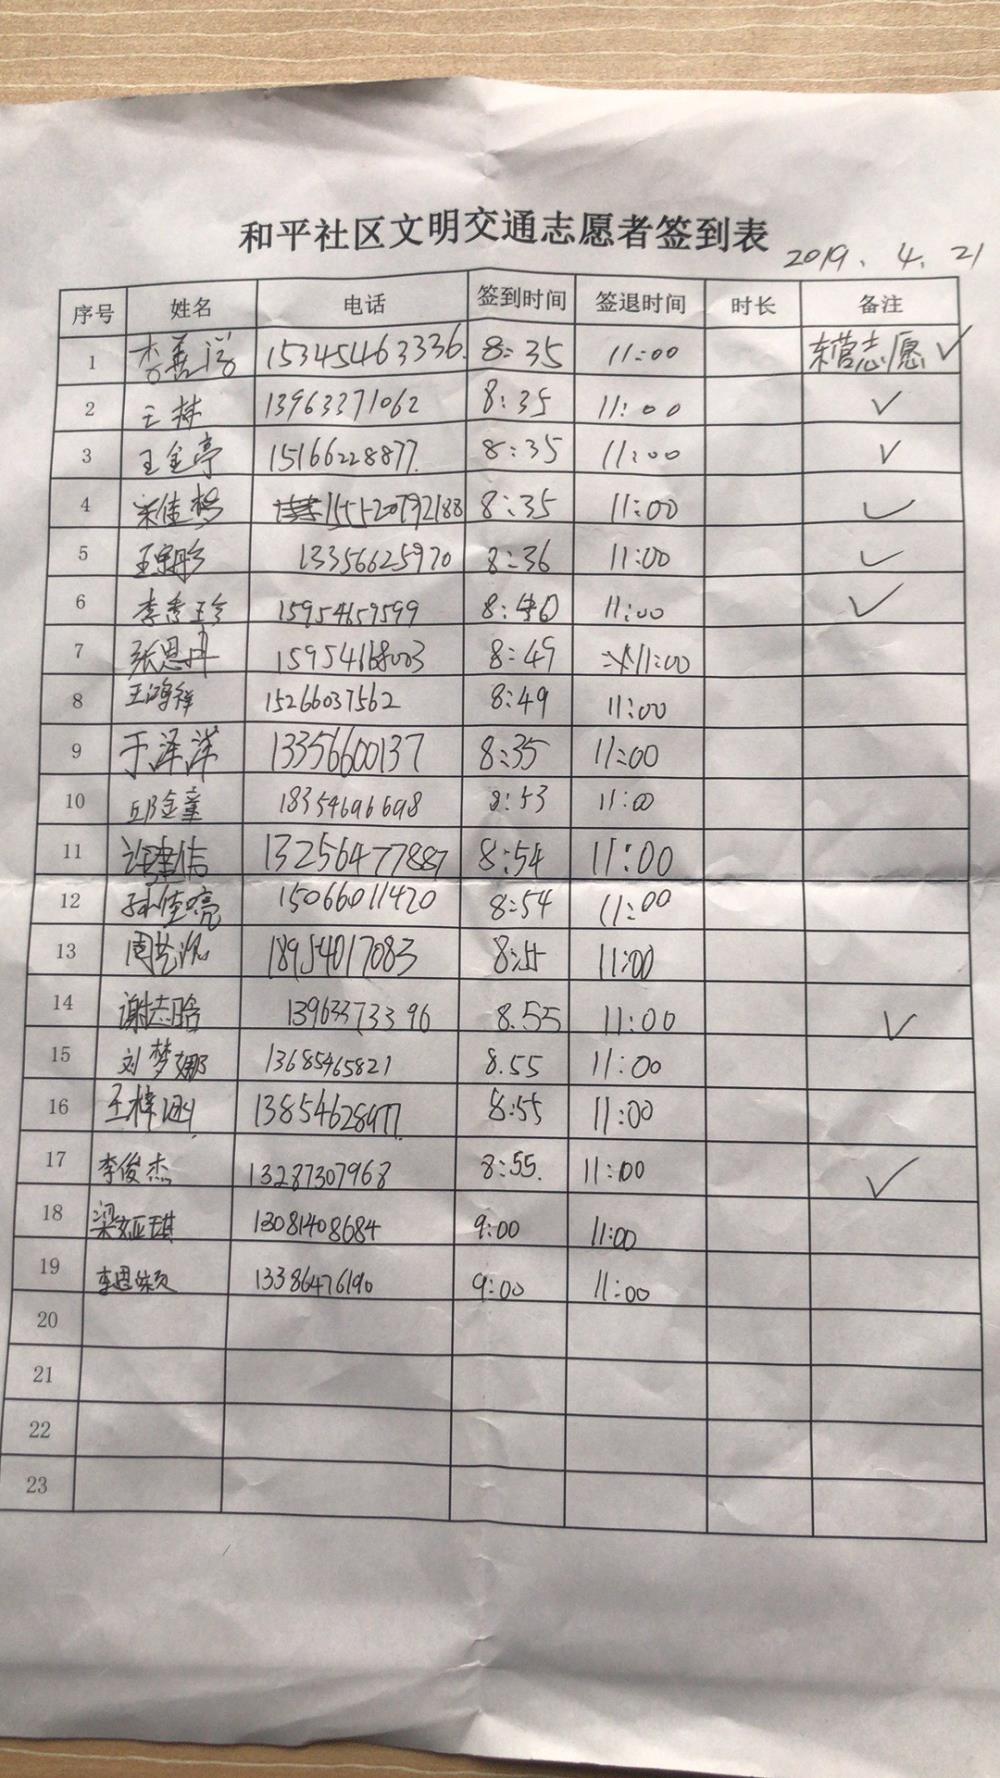 和平社区文明交通志愿者签到表
2019. 4. 21
序号 姓名 电话 签到时间 签退时间 时长 备注
1 李善 15345463336. 8:35 11:00 东营志愿 ✓
2 王林 13963371062 8:35 11:00 ✓
3 王金亭 15166228877. 8:35 11:00 ✓
4 宋佳 8:35 11:00 ✓
5 13356625970 8:36 11:00 ✓
6 李秀珍 15954659599 8:40 11:00 ✓
7 张恩丹 8:49 11:00
8 王鸿祥 15266037562 8:49 11:00
9 于泽洋 13356600137 8:35 11:00
10 邱金童 18354696698 8:53 11:00
11 13256477887 8:54 11:00
12 孙佳亮 15066011420 8:54 11:00
13 周艺 18954017083 8:55 11:00
14 谢志 13963373396 8.55 11:00 ✓
15 刘梦娜 13685465821 8.55 11:00
16 王梓 8:55 11:00
17 李俊杰 13287307968 8:55. 11:00 ✓
18 梁亚琪 13081408684 9:00 11:00
19 李恩 13386476190 9:00 11:00
20
21
22
23